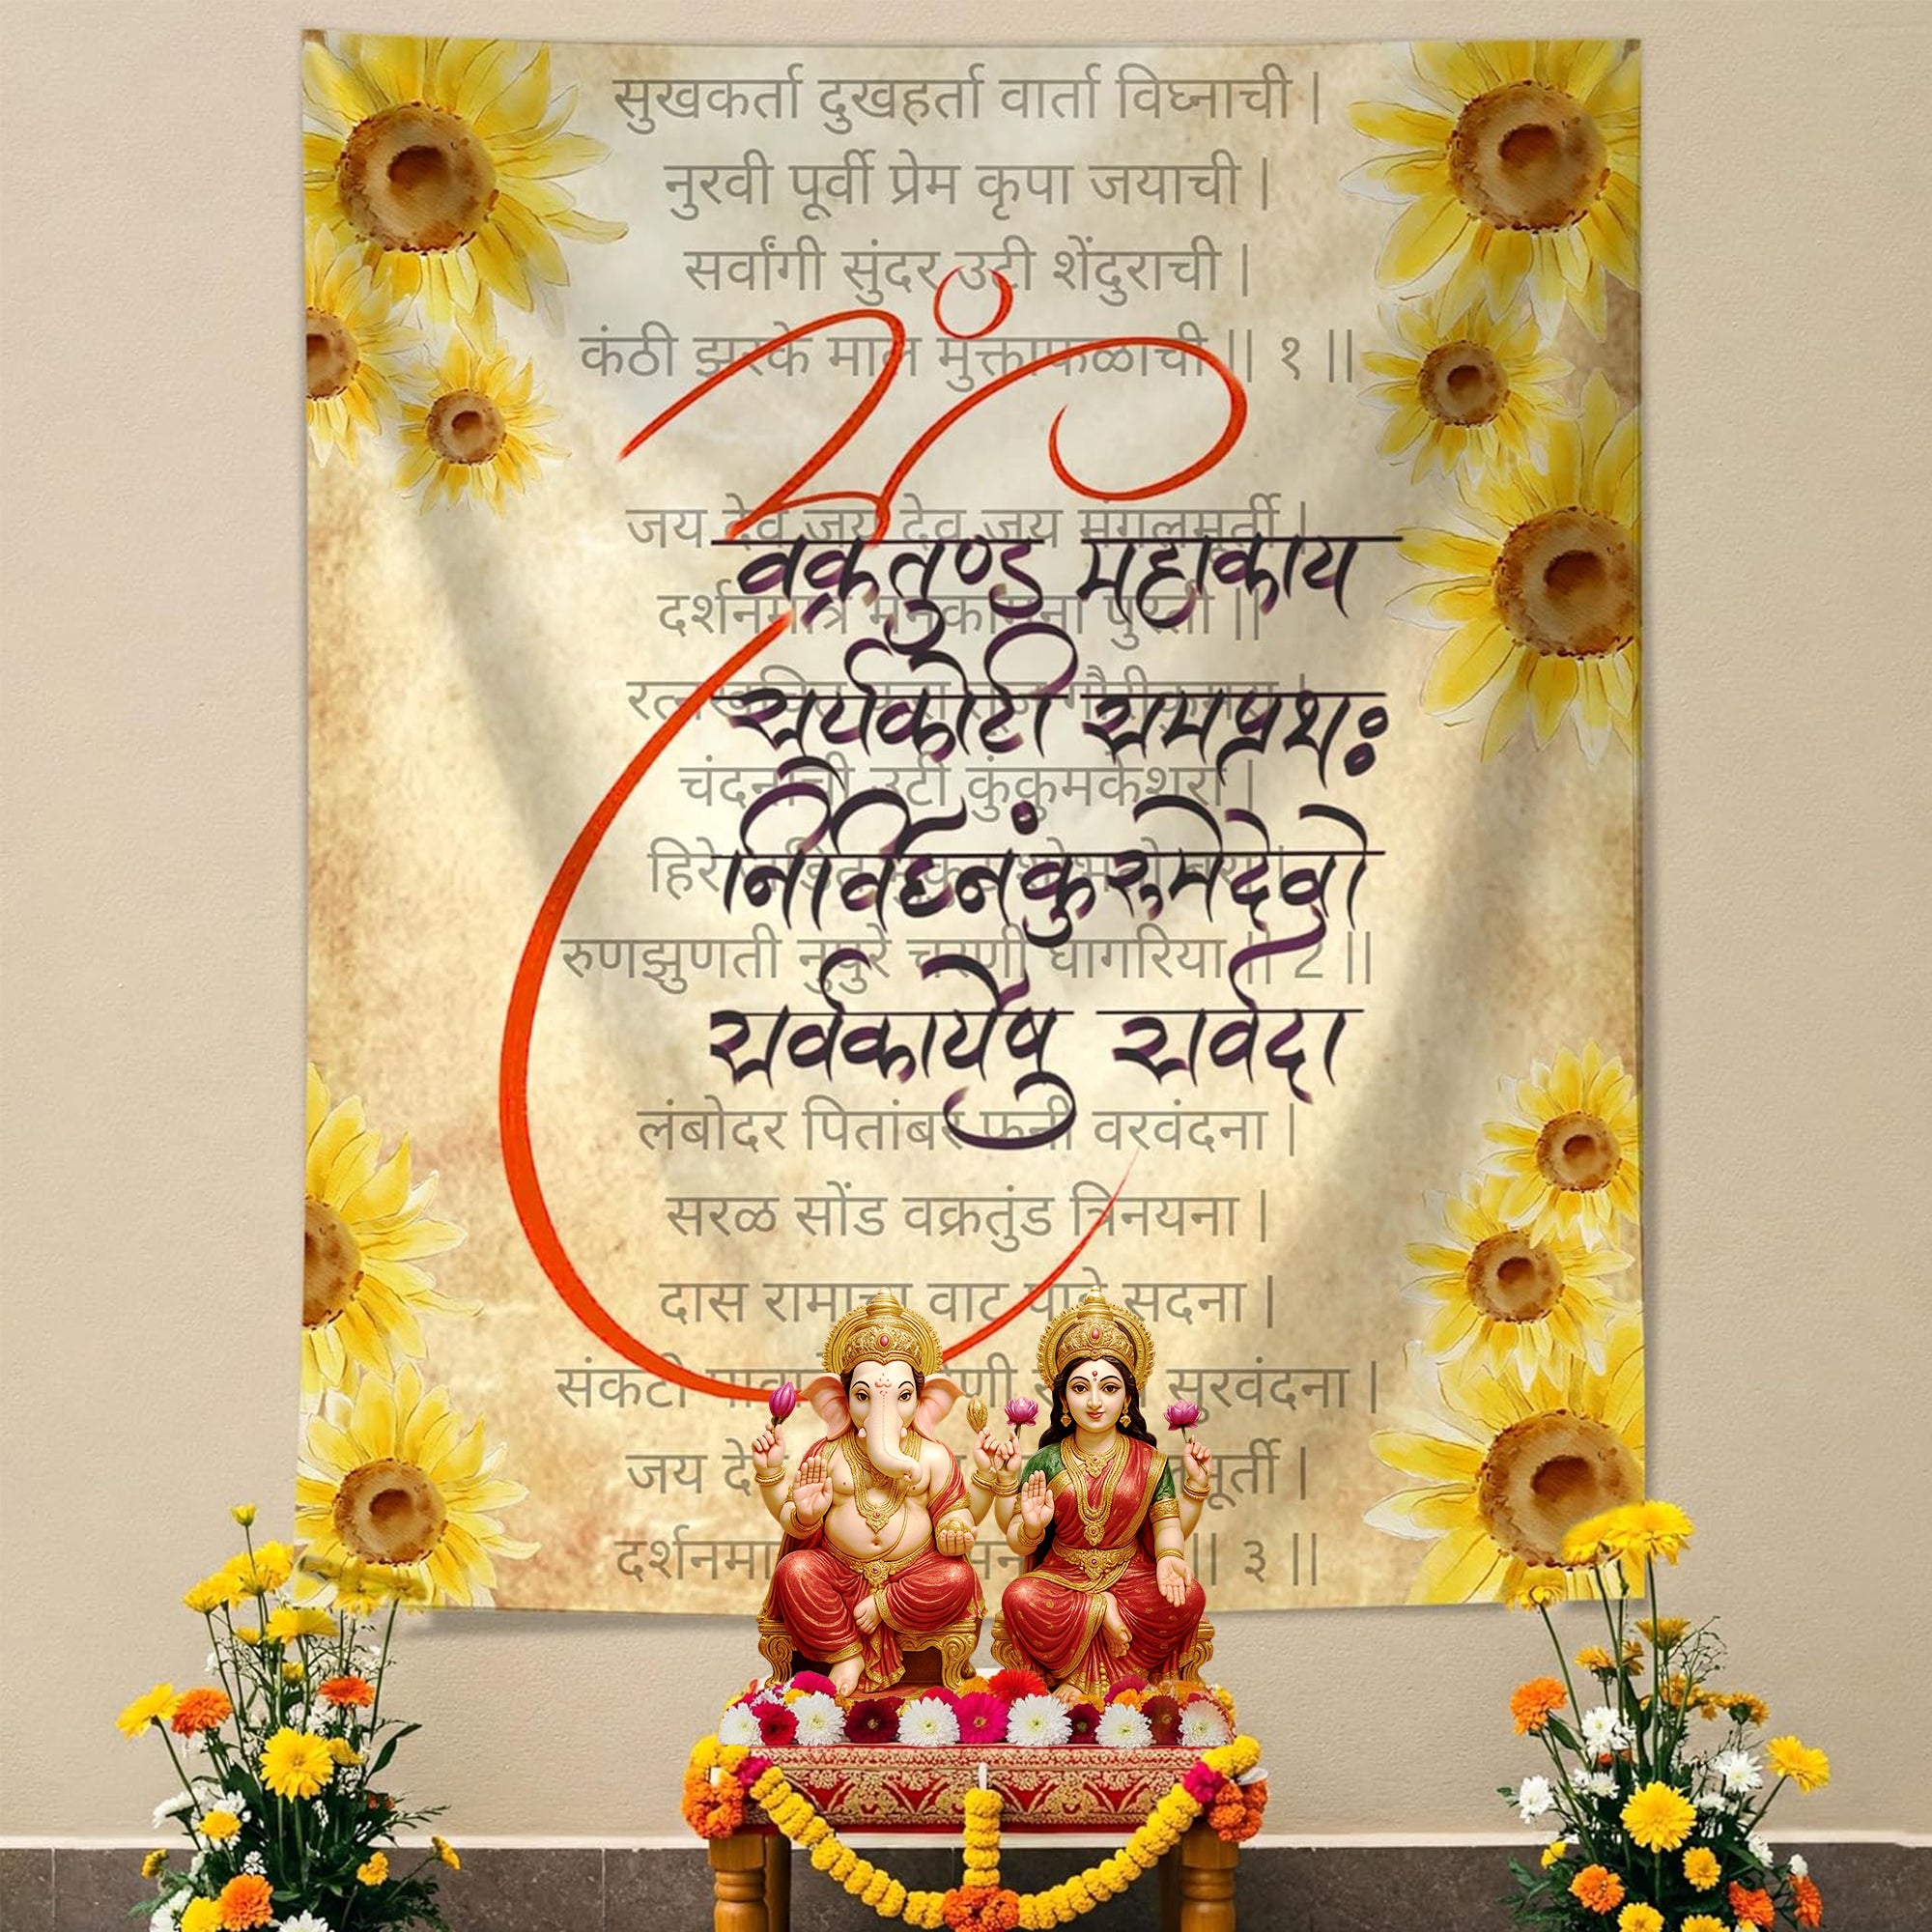 सुखकर्ता दुखहर्ता वार्ता विघ्नाची |
नुरवी पूर्वी प्रेम कृपा जयाची |
सर्वांगी सुंदर उटी शेंदुराची |
कंठी झरके माल मुक्ताफळाची || १ ||
जय देव जय देव जय मंगलमूर्ती |
वक्रतुण्ड महाकाय
दर्शनमात्रे मनकामना पुरती ||
सूर्यकोटी समप्रभः
चंदनाची उटी कुंकुमकेशरा |
निर्विघ्नं कुरुमेदेवो
हिरे
रुणझुणती नुपुरे चरणी घागरिया || 2 ||
सर्वकार्येषु सर्वदा
लंबोदर पितांबर फनी वरवंदना |
सरळ सोंड वक्रतुंड त्रिनयना |
दास रामाचा वाट पाहे सदना |
संकटी सुरवंदना |
जय
|| ३ ||